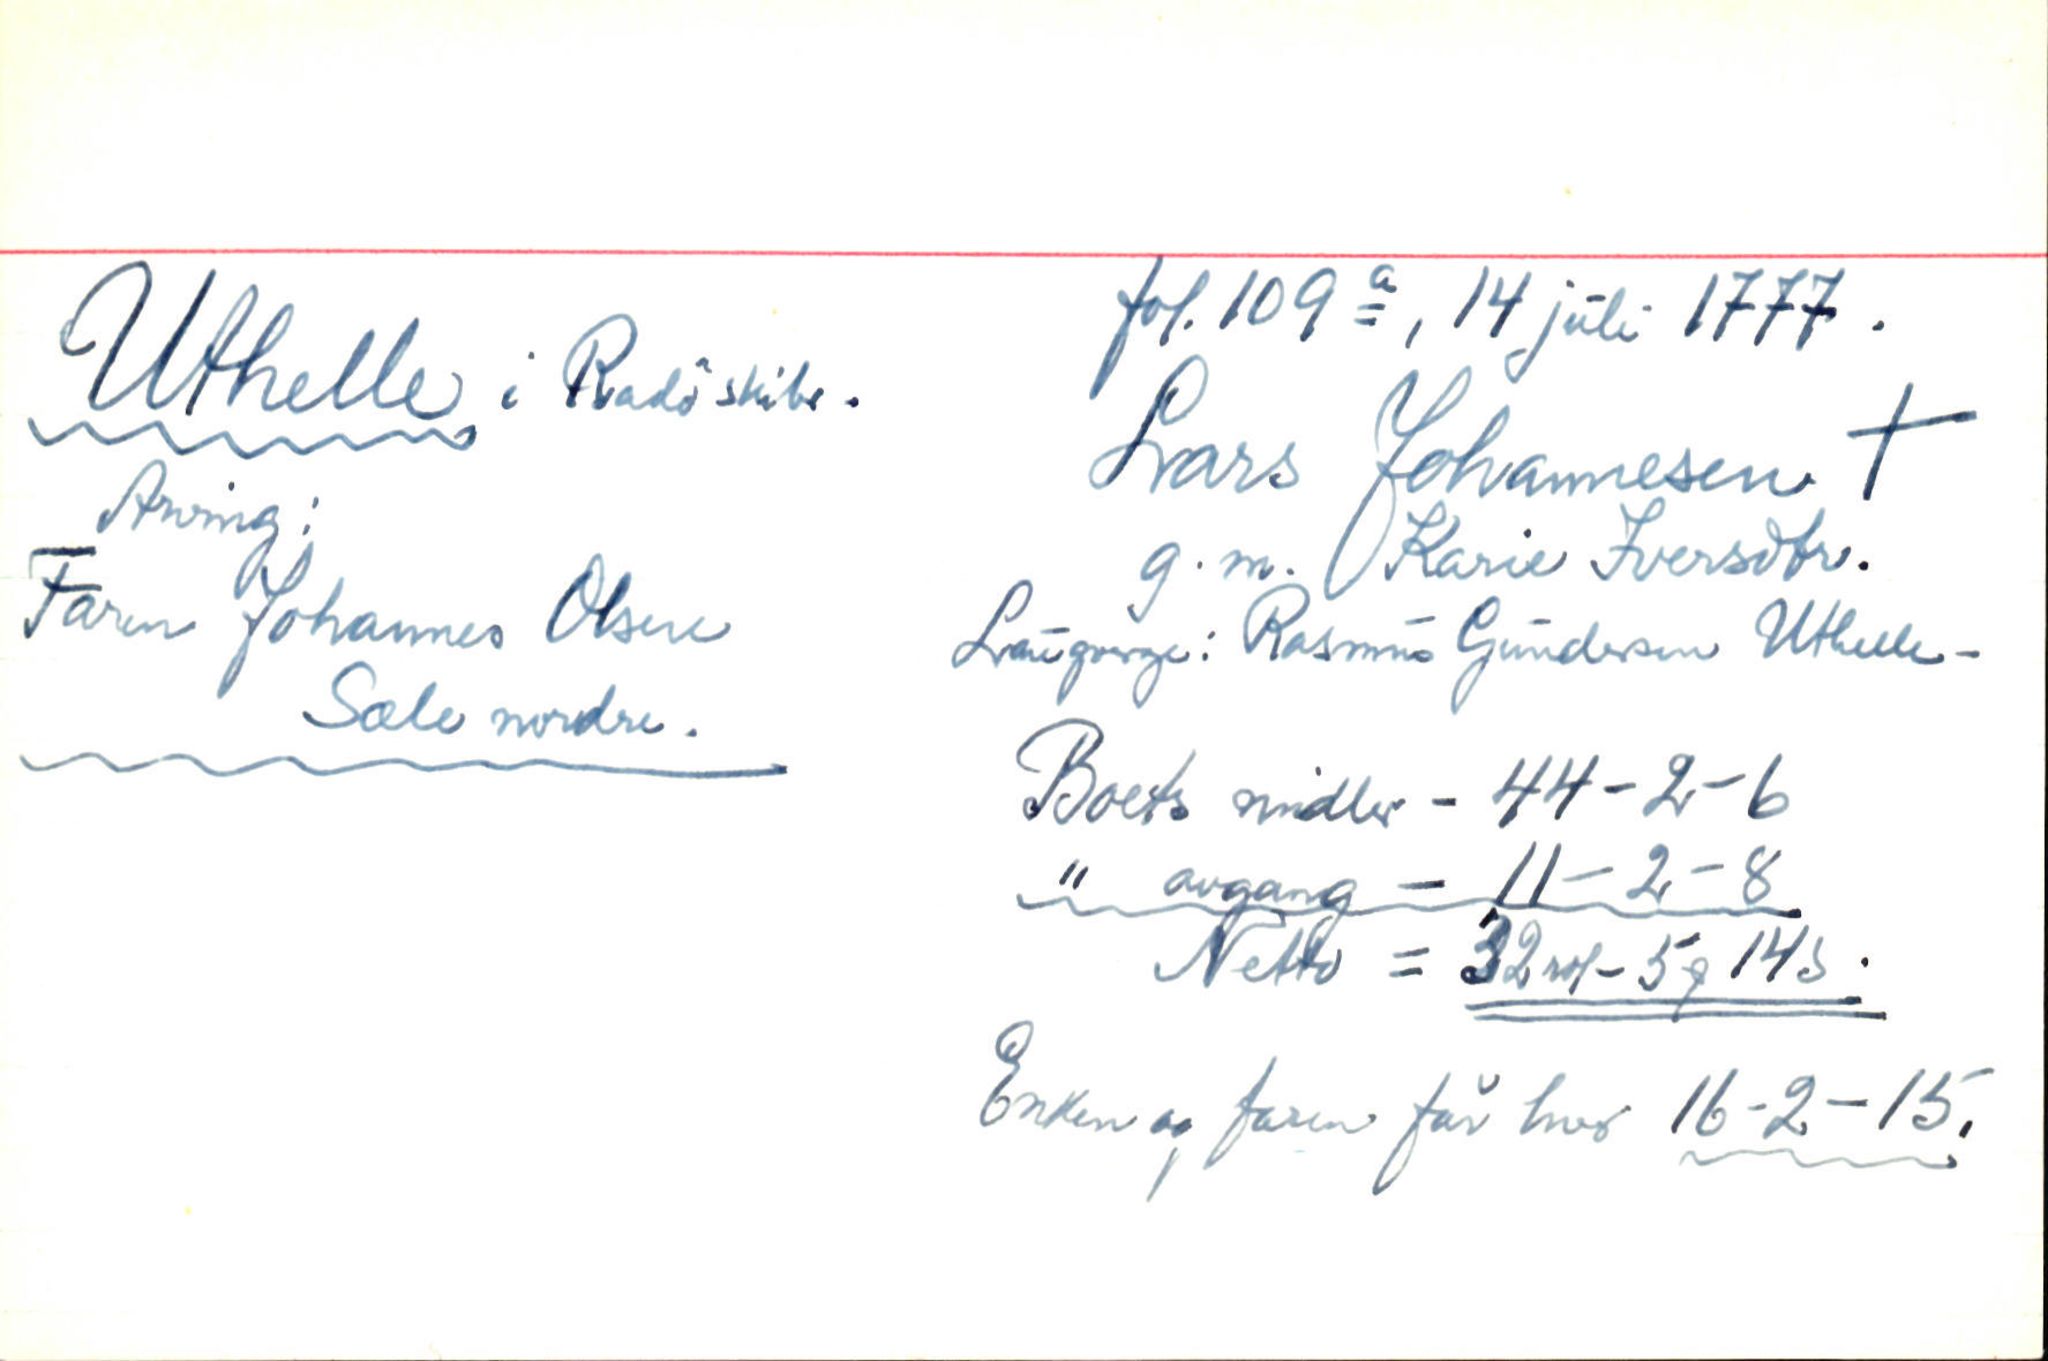 Uthelle i Radöskibr.
Arving:
Faren Johannes Olsen
Sæle nordre.
fol. 109 a, 14 juli 1777.
Lars Johannesen †
g. m. Karie Iversdtr.
Laugverge: Rasmus Gundersen Uthelle -
Boets midler - 44-2-6
" avgang - 11-2-8
Netto = 32 rd - 5 ƒ 14 s.
Enken og faren får hver 16-2-15.